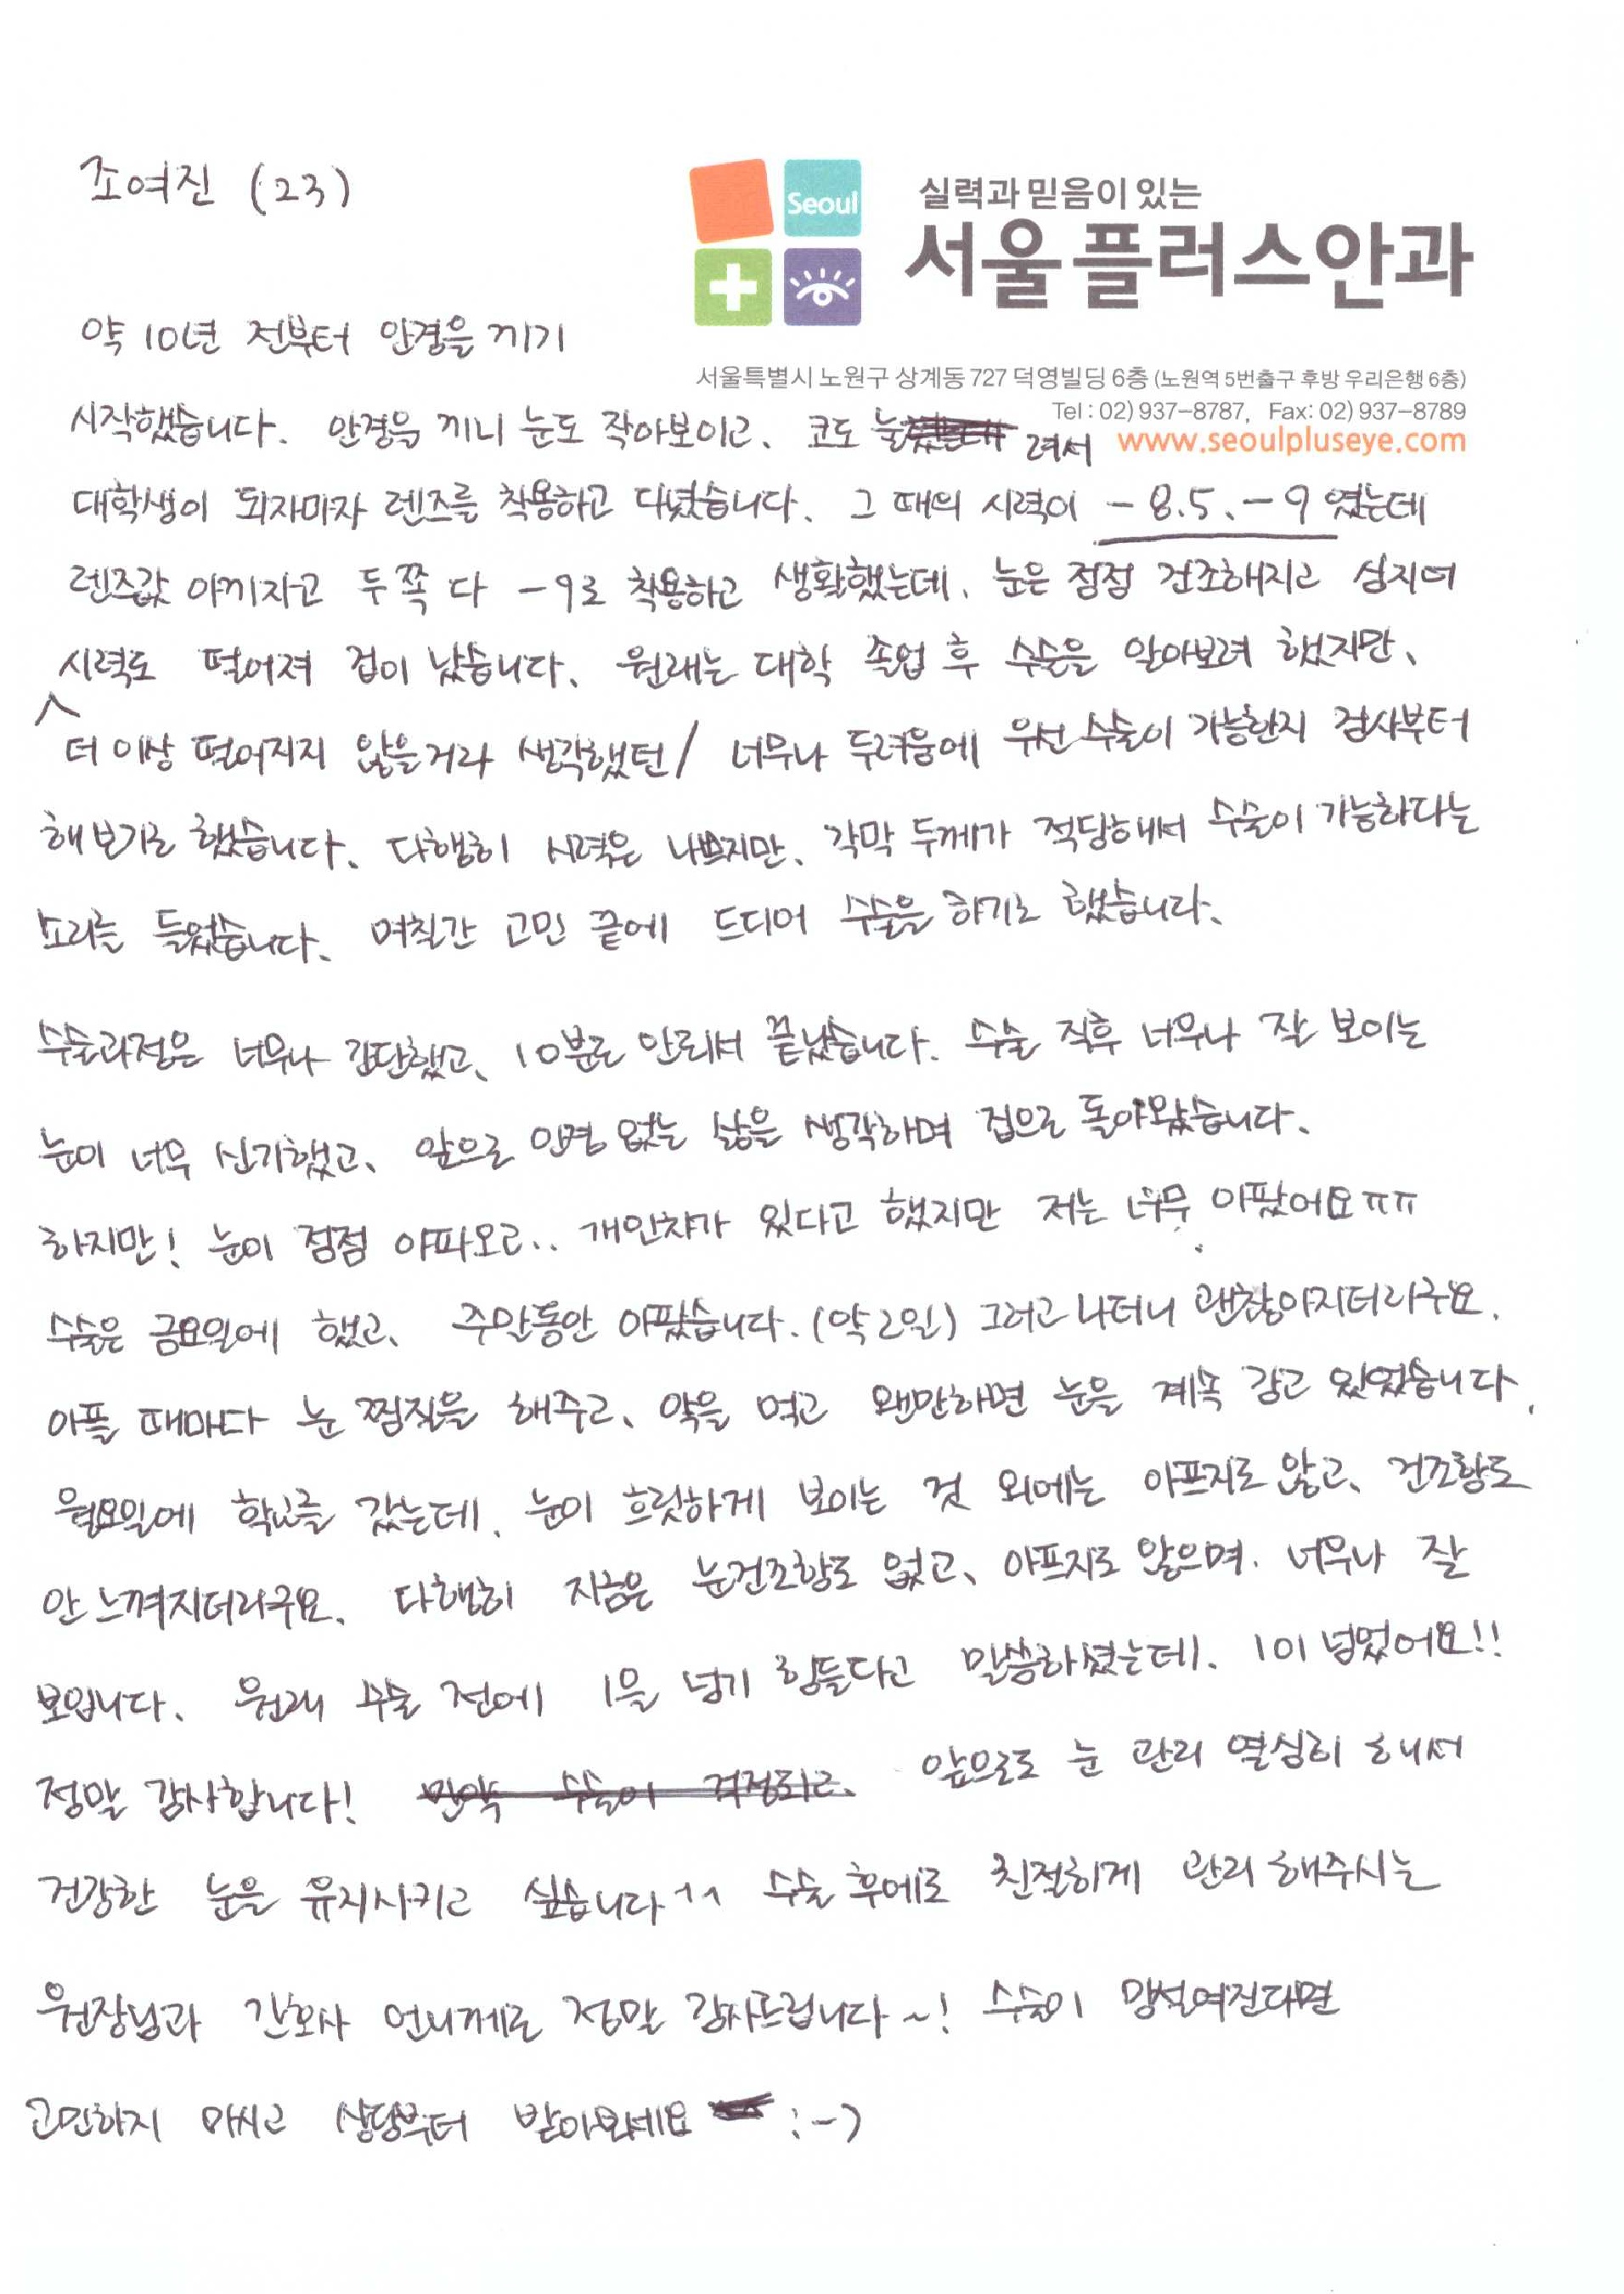 조여진 (23)
Seoul
실력과 믿음이 있는
서울플러스안과
서울특별시 노원구 상계동 727 덕영빌딩 6층 (노원역 5번출구 후방 우리은행 6층)
Tel : 02) 937-8787, Fax: 02) 937-8789
www.seoulpluseye.com
약 10년 전부터 안경을 끼기
시작했습니다. 안경을 끼니 눈도 작아보이고, 코도 눌려서
대학생이 되자마자 렌즈를 착용하고 다녔습니다. 그 때의 시력이 -8.5, -9 였는데
렌즈값 아끼자고 두 쪽 다 -9로 착용하고 생활했는데, 눈은 점점 건조해지고 심지어
시력도 떨어져 겁이 났습니다. 원래는 대학 졸업 후 수술을 알아보려 했지만,
더 이상 떨어지지 않을거라 생각했던/ 너무나 두려움에 우선 수술이 가능한지 검사부터
해보기로 했습니다. 다행히 시력은 나쁘지만, 각막 두께가 적당해서 수술이 가능하다는
소리를 들었습니다. 며칠간 고민 끝에 드디어 수술을 하기로 했습니다.
수술과정은 너무나 간단했고, 10분도 안되서 끝났습니다. 수술 직후 너무나 잘 보이는
눈이 너무 신기했고, 앞으로 안경 없는 삶을 생각하며 집으로 돌아왔습니다.
하지만! 눈이 점점 아파오고.. 개인차가 있다고 했지만 저는 너무 아팠어요ㅠㅠ
수술은 금요일에 했고, 주말동안 아팠습니다. (약 2일) 그러고 나더니 괜찮아지더라구요.
아플 때마다 눈 찜질을 해주고, 약을 먹고 왠만하면 눈을 계속 감고 있었습니다.
월요일에 학교를 갔는데, 눈이 흐릿하게 보이는 것 외에는 아프지도 않고, 건조함도
안 느껴지더라구요. 다행히 지금은 눈건조함도 없고, 아프지도 않으며, 너무나 잘
보입니다. 원래 수술 전에 1을 넘기 힘들다고 말씀하셨는데, 1이 넘었어요!!
정말 감사합니다! 만약 수술이 걱정되고, 앞으로도 눈 관리 열심히 해서
건강한 눈을 유지시키고 싶습니다^^ 수술 후에도 친절하게 관리해주시는
원장님과 간호사 언니께도 정말 감사드립니다~! 수술이 망설여진다면
고민하지 마시고 상담부터 받아보세요 :-)